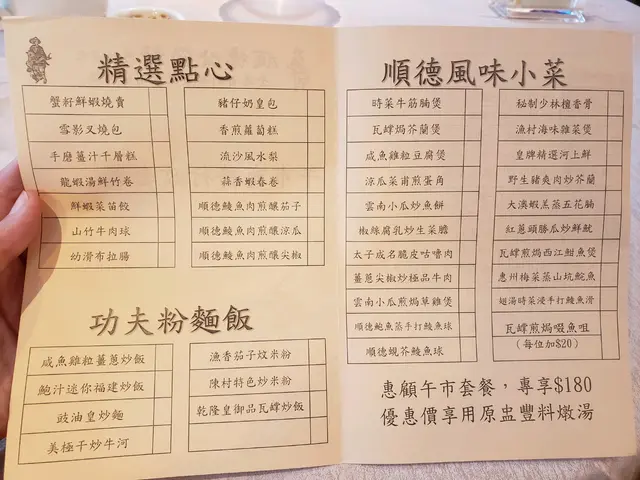 精選點心
蟹籽鮮蝦燒賣
雪影叉燒包
手磨薑汁千層糕
龍蝦湯鮮竹卷
鮮蝦菜苗餃
山竹牛肉球
幼滑布拉腸
豬仔奶皇包
香煎蘿蔔糕
流沙風水梨
蒜香蝦春卷
順德鯪魚肉煎釀茄子
順德鯪魚肉煎釀涼瓜
順德鯪魚肉煎釀尖椒
功夫粉麵飯
咸魚雞粒薑蔥炒飯
鮑汁迷你福建炒飯
豉油皇炒麵
美極干炒牛河
漁香茄子炆米粉
陳村特色炒米粉
乾隆皇御品瓦罉炒飯
順德風味小菜
時菜牛筋腩煲
瓦罉焗芥蘭煲
咸魚雞粒豆腐煲
涼瓜菜甫煎蛋角
雲南小瓜炒魚餅
椒絲腐乳炒生菜膽
太子成名脆皮咕嚕肉
薑蔥尖椒炒極品牛肉
雲南小瓜煎焗草雞煲
順德鮑魚蒸手打鯪魚球
順德蜆芥鯪魚球
秘制少林檀香骨
漁村海味雜菜煲
皇牌精選河上鮮
野生豬爽肉炒芥蘭
大澳蝦羔蒸五花腩
紅蔥頭勝瓜炒鮮魷
瓦罉煎焗西江鮒魚煲
惠州梅菜蒸山坑鯇魚
翅湯時菜浸手打鯪魚滑
瓦罉煎焗啜魚咀
(每位加$20)
惠顧午市套餐，專享$180
優惠價享用原盅豐料燉湯